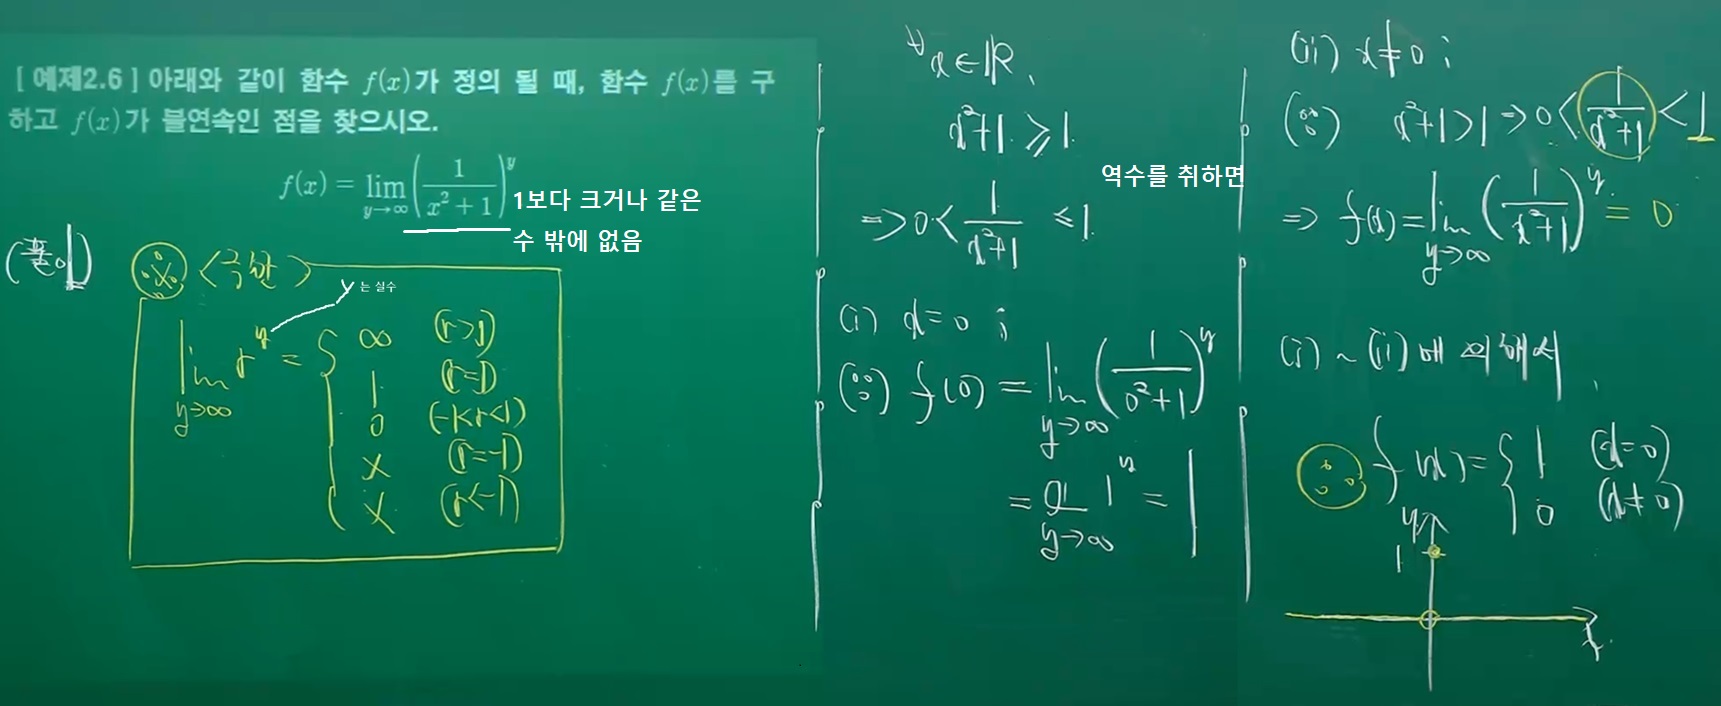 [ 예제2.6 ] 아래와 같이 함수 f(x)가 정의 될 때, 함수 f(x)를 구
하고 f(x)가 불연속인 점을 찾으시오.
f(x) = lim_{y→∞} (1/(x²+1))^y
1보다 크거나 같은
수 밖에 없음
(풀이)
<극한>
y 는 실수
lim_{y→∞} r^y = { ∞ (r>1)
1 (r=1)
0 (-1<r<1)
X (r=-1)
X (r<-1)
∀x∈ℝ,
x²+1 ≥ 1
역수를 취하면
⇒ 0 < 1/(x²+1) ≤ 1
(i) x=0 ;
(∵) f(0) = lim_{y→∞} (1/(0²+1))^y
= lim_{y→∞} 1^y = 1
(ii) x≠0 ;
(∵) x²+1>1 ⇒ 0 < 1/(x²+1) < 1
⇒ f(x) = lim_{y→∞} (1/(x²+1))^y = 0
(i) ~ (ii)에 의해서,
∴ f(x) = { 1 (x=0)
0 (x≠0)
y
1
x